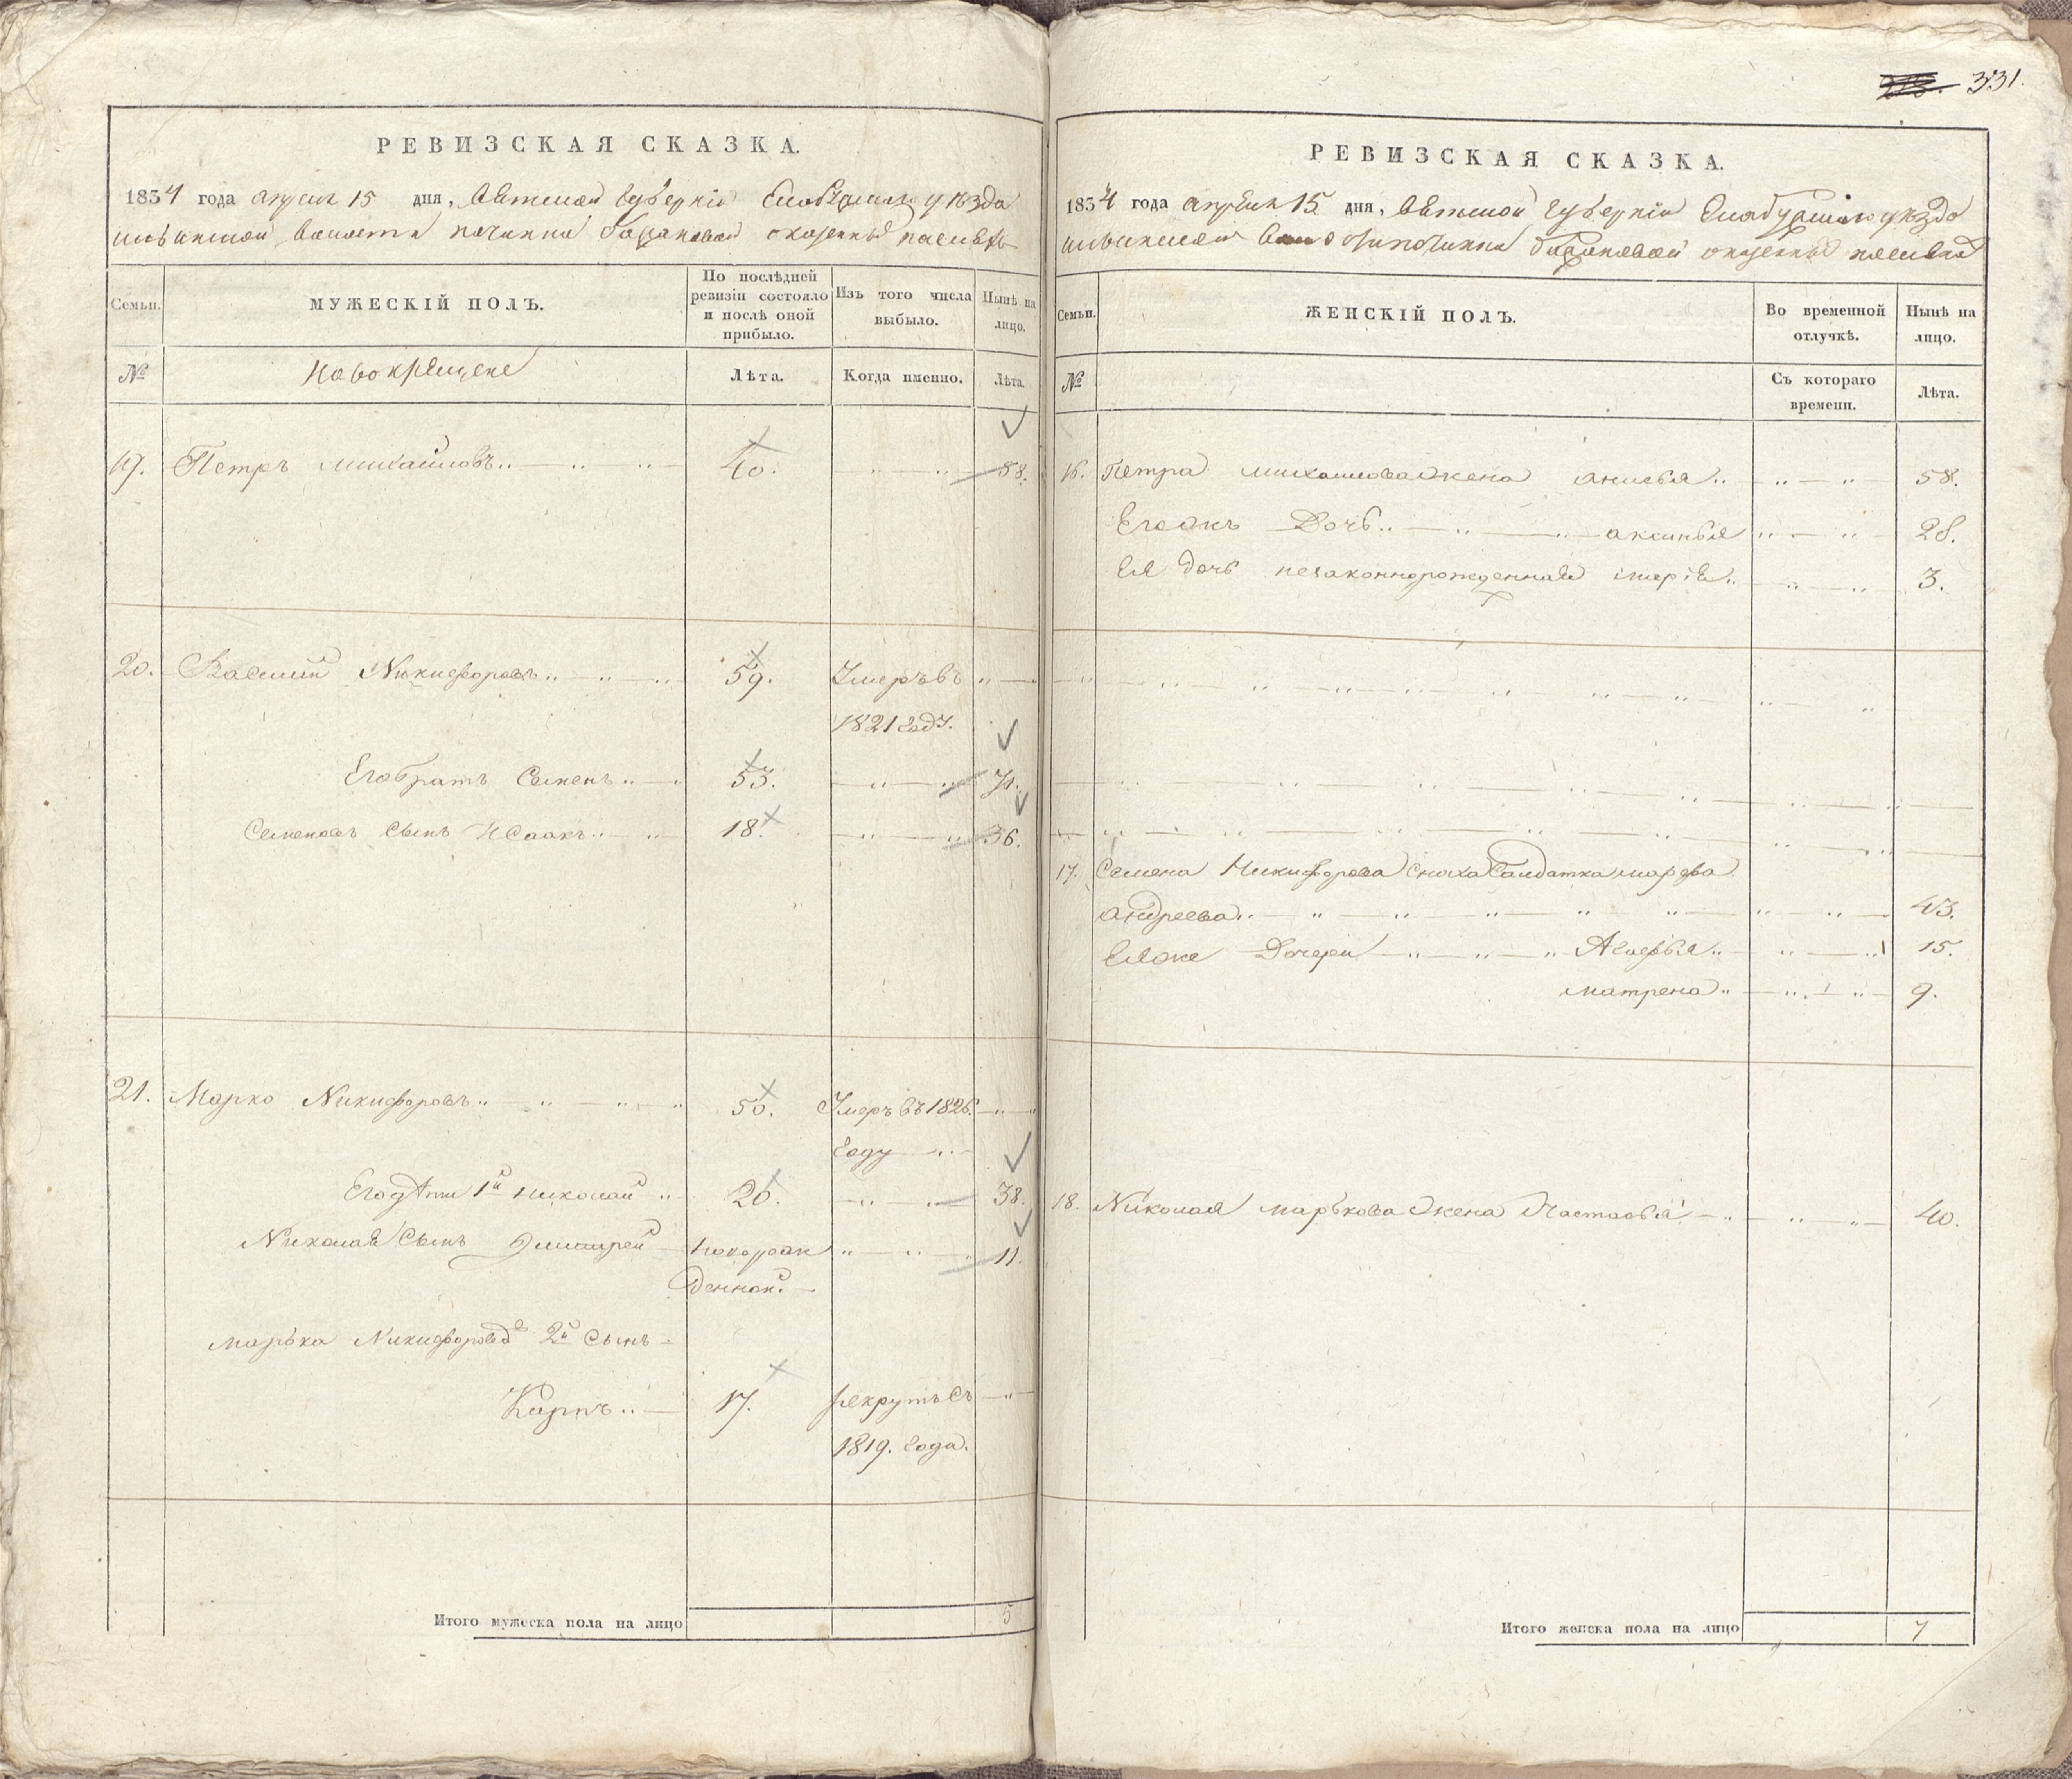 331.
РЕВИЗСКАЯ СКАЗКА.
1834 года апреля 15 дня, Вятской губернiи Елабушского уѣзда
волости починка Барановой о казенныхъ
Семьи.
МУЖЕСКІЙ ПОЛЪ.
По послѣдней ревизіи состояло и послѣ оной прибыло.
Изъ того числа выбыло.
Нынѣ на лицо.
№
Новокрещене
Лѣта.
Когда именно.
Лѣта.
19. Петръ Михаиловъ 40. 58.
20. Василий Никифоровъ 59. Умеръ въ
1821 году.
Его братъ Семенъ 53. 71.
Семеновъ сынъ Исаакъ 18. 36.
21. Марко Никифоровъ 50. Умеръ въ 1826.
году
Его дѣти 1й Николай 20. 38.
Николая сынъ Дмитрей новорож 11.
денной.
Марька Никифорова 2й сынъ
Карпъ 17. рекрутъ съ
1819. года.
Итого мужеска пола на лицо 5
РЕВИЗСКАЯ СКАЗКА.
1834 года апреля 15 дня, Вятской губернiи Елабушского уѣзда
починка Барановой о казенныхъ
Семьи.
ЖЕНСКІЙ ПОЛЪ.
Во временной отлучкѣ.
Нынѣ на лицо.
№
Съ котораго времени.
Лѣта.
16. Петра Михаилова жена Анисья 58.
Егожъ дочь Аксинья 28.
Ея дочь незаконнорожденная Марiя 3.
17. Семена Никифорова сноха Салдатка Марфа
Андреева 43.
Еяже дочери Агафья 15.
Матрена 9.
18. Николая Марькова жена Настасья 40.
Итого женска пола на лицо 7